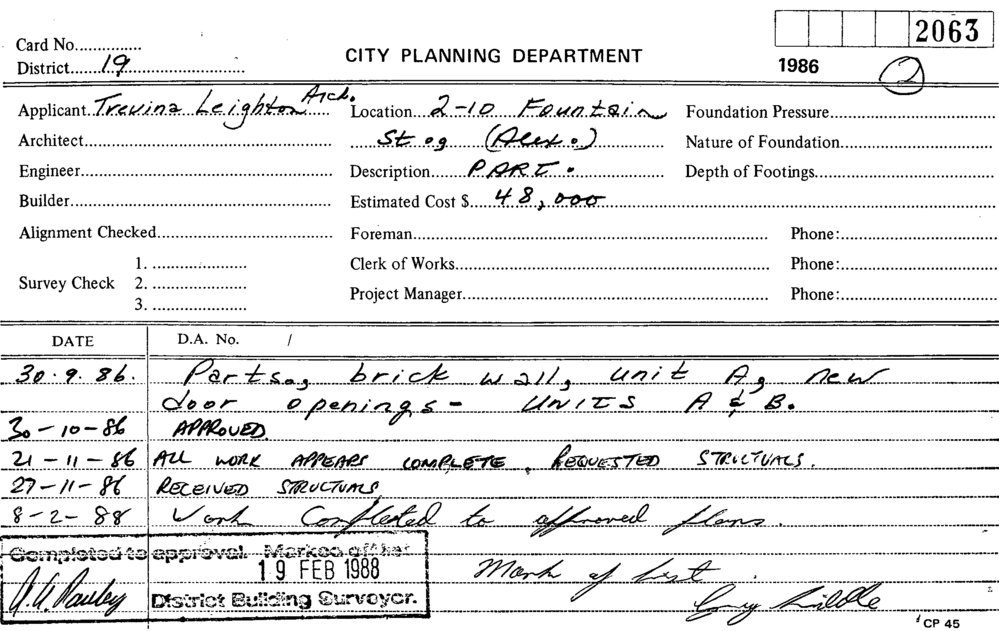 2063
Card No...............
CITY PLANNING DEPARTMENT
District......19........................
1986
2
Applicant.Trevina Leighton Arch.
Location...2-10 Fountain
Foundation Pressure
Architect
St., (Alex.)
Nature of Foundation
Engineer
Description......PART.
Depth of Footings
Builder
Estimated Cost $....48,000
Alignment Checked
Foreman
Phone:
Survey Check
1.
2.
3.
Clerk of Works
Phone:
Project Manager
Phone:
DATE
D.A. No. /
30.9.86. Parts., brick wall, unit A, new
door openings - UNITS A & B.
30-10-86 APPROVED.
21-11-86 ALL WORK APPEARS COMPLETE, REQUESTED STRUCTUALS.
27-11-86 RECEIVED STRUCTUALS
8-2-88 Work Completed to approved plans.
Completed to approval. Marked off list
19 FEB 1988
Mark of list
District Building Surveyor.
CP 45